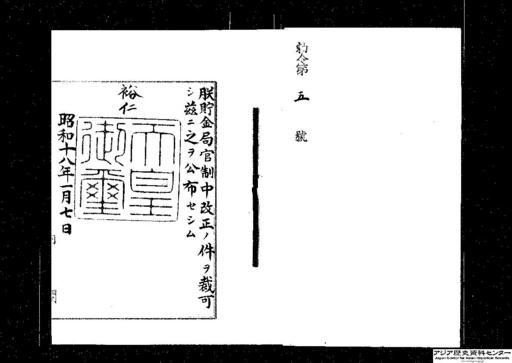 勅令第五號
朕貯金局官制中改正ノ件ヲ裁可
シ茲ニ之ヲ公布セシム
裕仁
天皇御璽
昭和十八年一月七日
アジア歴史資料センター
Japan Center for Asian Historical Records